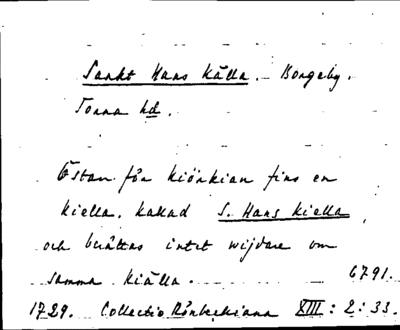 Sankt Hans Källa. Borgeby.
Torna hd.
Östan för kiörkian fins en
kiella, kallad S. Hans kiella,
och berättas intet wijdare om
samma kiälla. 6791.
1729. Collectio Rönbeckiana XIII: 2: 33.